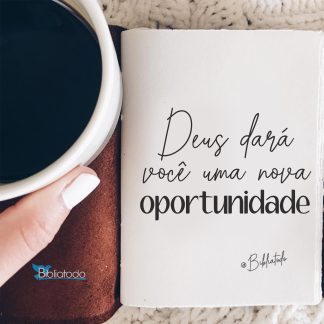 Deus dará
você uma nova
oportunidade
@Bibliatodo
Bibliatodo